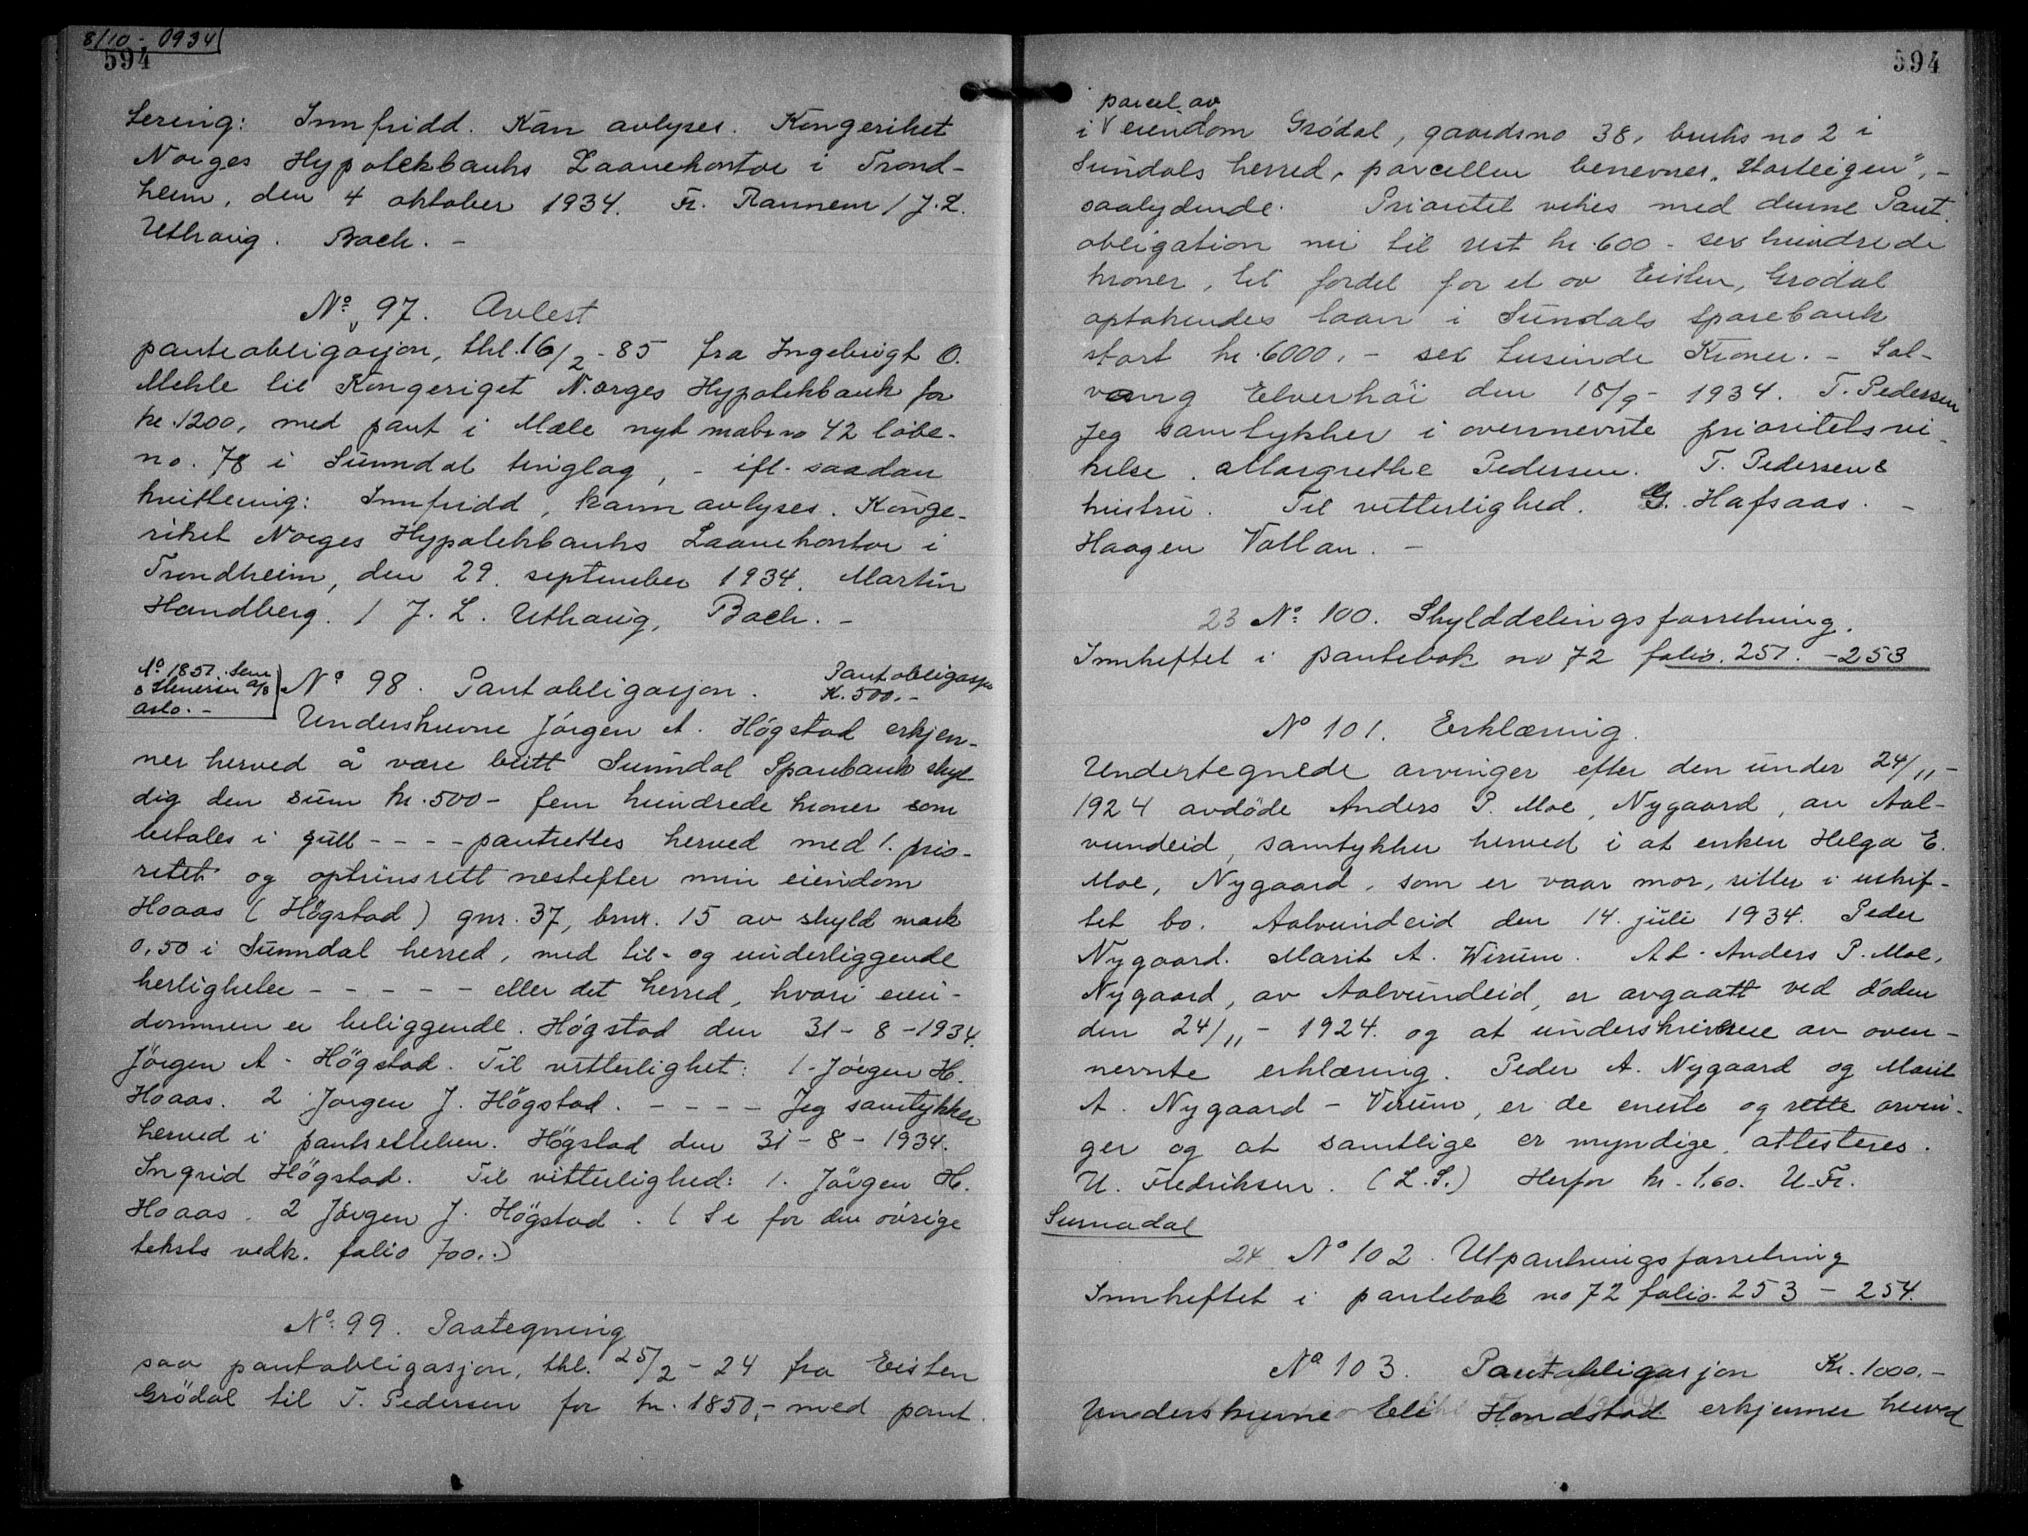 8/10 - 0934
594
tering: Innfridd. Kan avlyses. Kongeriket
Norges Hypotekbanks Laanekontor i Trond-
heim, den 4 oktober 1934. Fr. Rannem / J. L.
Uthaug. Bach. -
No 97. Avlest
panteobligasjon, thl. 16/2 - 85 fra Ingebrigt O.
Mehle til Kongeriget Norges Hypotekbank for
kr. 1200, med pant i Mæle nyt mabr no 42 løbe-
no. 78 i Sunndal tinglag, - ifl. saadan
kvittering: Innfridd, kann avlyses. Konge-
riket Norges Hypotekbanks Laanekontor i
Trondheim, den 29. september 1934. Martin
Handberg. / J. L. Uthaug, Bach. -
No 1851. Sem
& Stenersen A/S
Oslo. -
No 98. Pantobligasjon. Pantobligasjon
K. 500. -
Underskrevne Jörgen A. Högstad erkjen-
ner herved å være blitt Sunndal Sparebank skyl
dig den sum kr. 500 - fem hundrede kroner som
betales i gull - - - - pantsettes herved med 1. prio-
ritet og optrinsrett nestefter min eiendom
Hoaas (Högstad) gnr. 37, brnr. 15 av skyld mark
0,50 i Sunndal herred, med til- og underliggende
herligheter - - - - - eller det herred, hvori eien-
dommen er beliggende. Högstad den 31 - 8 - 1934.
Jörgen A. Högstad. Til vitterlighet: 1. Jörgen H.
Hoaas. 2 Jörgen J. Högstad. - - - - Jeg samtykker
herved i pantsettelsen. Högstad den 31 - 8 - 1934.
Ingrid Högstad. Til vitterlighed: 1. Jörgen H.
Hoaas. 2 Jörgen J. Högstad. (Se for den övrige
teksts vedk. folio 700.)
No 99. Paategning
saa pantobligasjon, thl. 25/2 - 24 fra Eisten
Grödal til T. Pedersen for kr. 1850,- med pant
594
parcel av
i eiendom Grödal, gaardsno 38, bruks no 2 i
Sundals herred, parcellen benevnes "Storteigen", -
saalydende. Prioritet vikes med denne Pant.
obligation nu til rest kr. 600 - sex hundrede
kroner, til fordel for et av Eisten, Grödal
optakendes laan i Sundals Sparebank
stort kr. 6000. - sex tusinde Kroner. - Sol-
vang Elverhöi den 18/9 - 1934. T. Pedersen
Jeg samtykker i overnevnte prioritetsvi-
kelse. Margrethe Pedersen. T. Pedersens
hustru. Til vitterlighed. G. Hafsaas. -
Haagen Vollan. -
23 No 100. Skylddelingsforretning.
Innheftet i pantebok no 72 folio. 251. - 253
No 101. Erklæring.
Undertegnede arvinger efter den under 24/11 -
1924 avdöde Anders P. Moe, Nygaard, av Aal-
vundeid, samtykker herved i at enken Helga E.
Moe, Nygaard, som er vaar mor, sitter i uskif-
tet bo. Aalvundeid den 14. juli 1934. Peder
Nygaard. Marit A. Wirum. At Anders P. Moe,
Nygaard, av Aalvundeid, er avgaatt ved döden
den 24/11 - 1924. og at underskriverne av oven-
nevnte erklæring. Peder A. Nygaard og Marit
A. Nygaard - Virum, er de eneste og rette arvin-
ger og at samtlige er myndige, attesteres.
U. Fredriksen. (L. S.) Herfor kr. 1,60. U. Fr.
Surnadal
24 No 102. Utpantningsforretning
Innheftet i pantebok no 72 folio. 253 - 254.
No 103. Pantobligasjon Kr. 1000. -
Underskrevne Eli Hondstad erkjenner herved